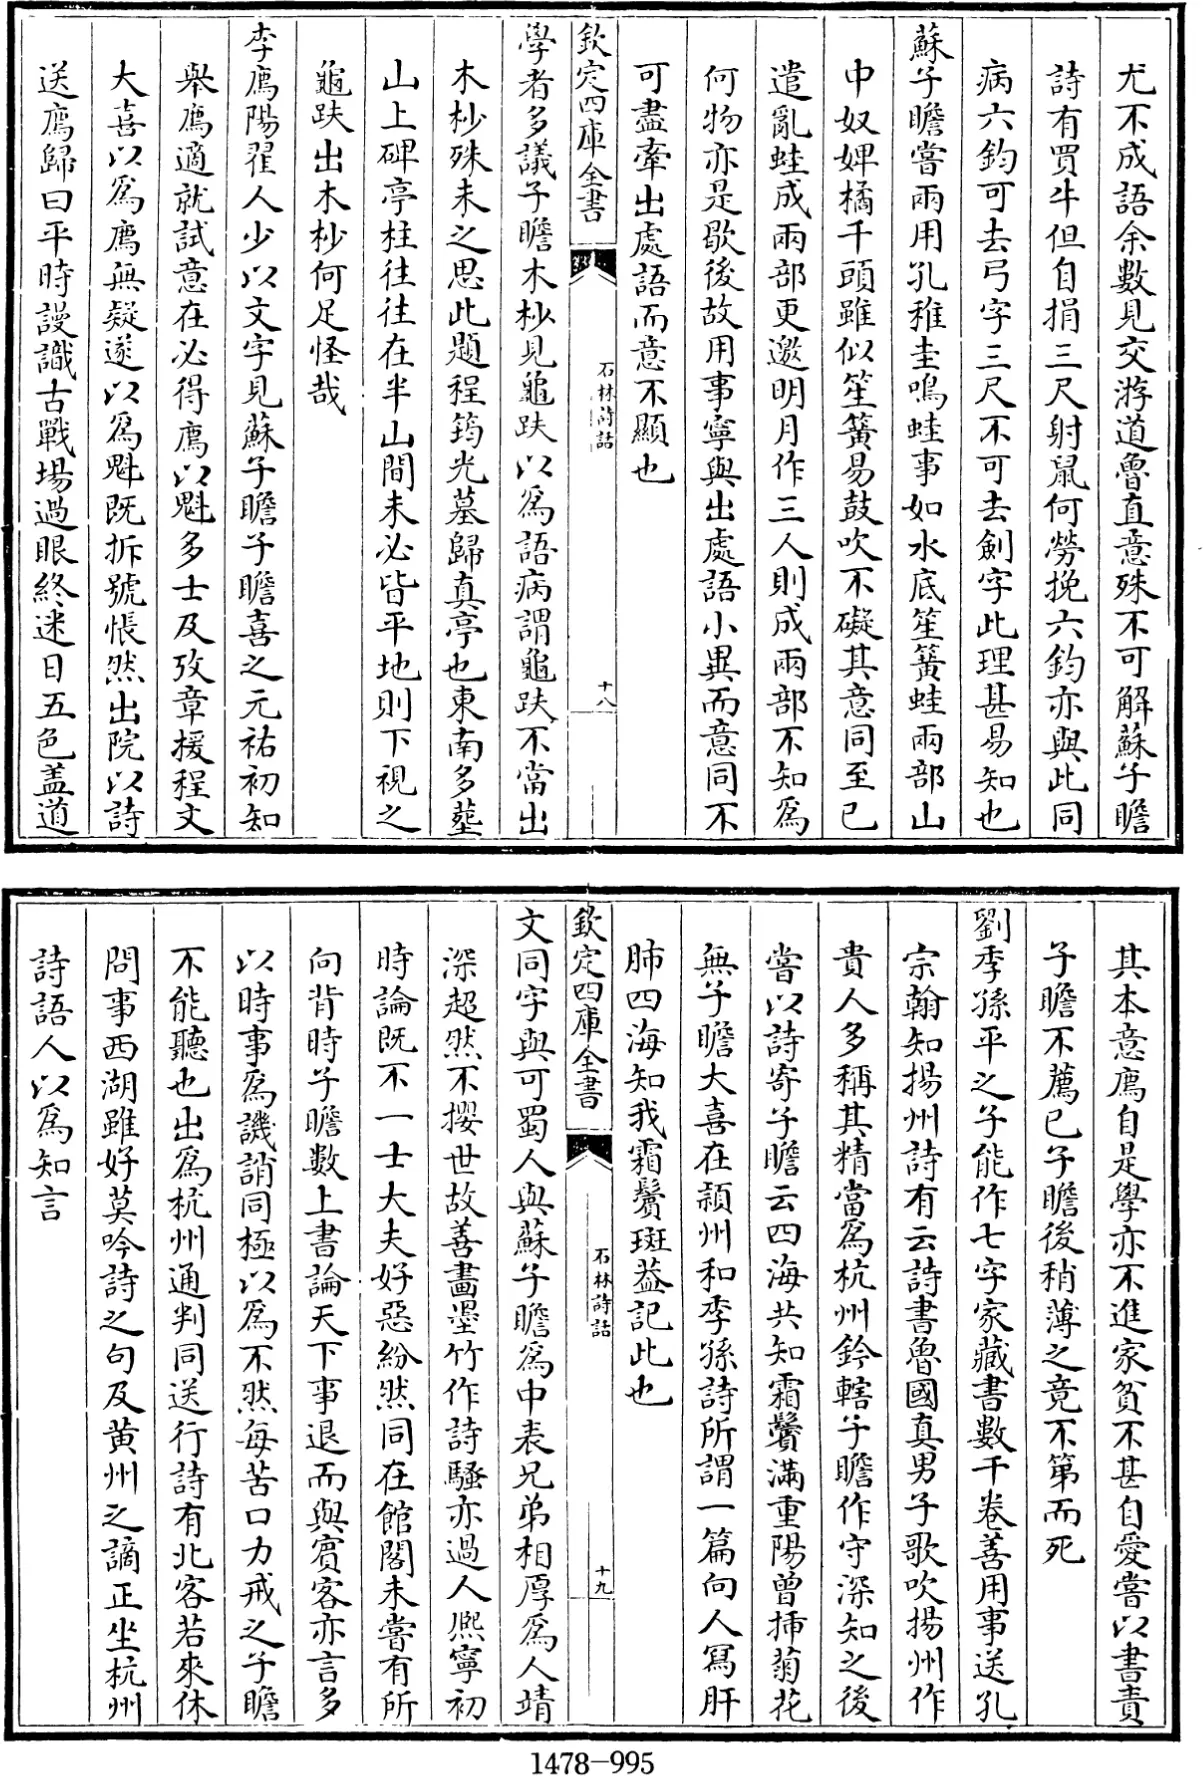 尤不成語余數見交游道魯直意殊不可解蘇子瞻
詩有買牛但自捐三尺射鼠何勞挽六鈞亦與此同
病六鈞可去弓字三尺不可去劍字此理甚易知也
蘇子瞻嘗兩用孔稚圭鳴蛙事如水底笙簧蛙兩部山
中奴婢橘千頭雖似笙簧易鼓吹不礙其意同至已
遣亂蛙成兩部更邀明月作三人則成兩部不知為
何物亦是歇後故用事寧與出處語小異而意同不
可盡牽出處語而意不顯也
欽定四庫全書
石林詩話
十八
學者多議子瞻木杪見龜趺以為語病謂龜趺不當出
木杪殊未之思此題程筠光墓歸真亭也東南多葬
山上碑亭柱往往在半山間未必皆平地則下視之
龜趺出木杪何足怪哉
李廌陽翟人少以文字見蘇子瞻子瞻喜之元祐初知
舉廌適就試意在必得廌以魁多士及攷章援程文
大喜以為廌無疑遂以為魁既拆號悵然出院以詩
送廌歸曰平時謾識古戰場過眼終迷日五色盖道
其本意廌自是學亦不進家貧不甚自愛嘗以書責
子瞻不薦已子瞻後稍薄之竟不第而死
劉季孫平之子能作七字家藏書數千卷善用事送孔
宗翰知揚州詩有云詩書魯國真男子歌吹揚州作
貴人多稱其精當為杭州鈐轄子瞻作守深知之後
嘗以詩寄子瞻云四海共知霜鬢滿重陽曾揷菊花
無子瞻大喜在潁州和季孫詩所謂一篇向人冩肝
肺四海知我霜鬢斑葢記此也
欽定四庫全書
石林詩話
十九
文同字與可蜀人與蘇子瞻為中表兄弟相厚為人靖
深超然不攖世故善畫墨竹作詩騷亦過人熈寧初
時論既不一士大夫好惡紛然同在館閣未嘗有所
向背時子瞻數上書論天下事退而與賓客亦言多
以時事為譏誚同極以為不然每苦口力戒之子瞻
不能聽也出為杭州通判同送行詩有北客若來休
問事西湖雖好莫吟詩之句及黄州之謫正坐杭州
詩語人以為知言
1478-995